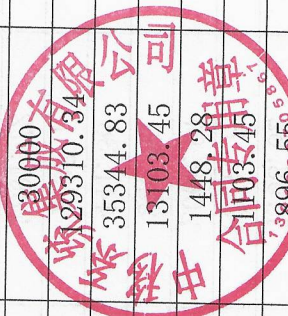 30000
129310.34
35344.83
13103.45
1448.28
1103.45
896.55
有限公司
合同专用章